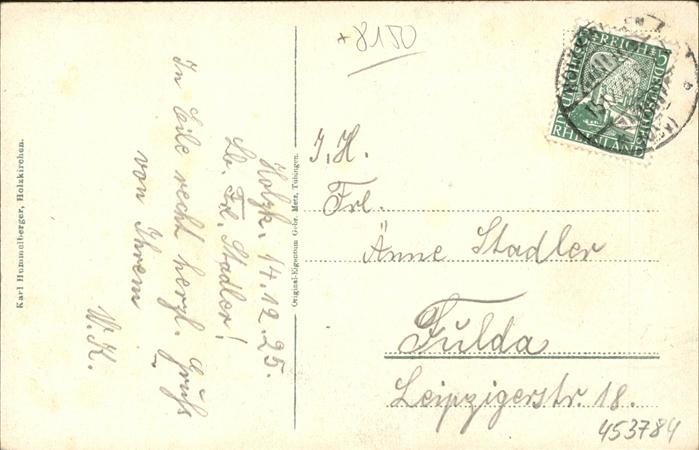 Karl Hummelberger, Holzkirchen.
Holzk. 14.12.25.
Lb. Frl. Stadler!
In Eile recht herzl. Grüß
von Ihrem
W. K.
Original-Eigentum Gebr. Metz, Tübingen.
* 8150
DEUTSCHES REICH
RHEINLAND
I. H.
Frl.
Änne Stadler
Fulda
Leipzigerstr 18.
453784